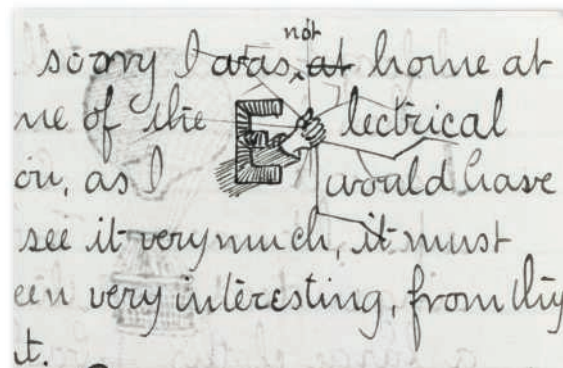 not
sorry I was ‸ at home at
ne of the Electrical
on, as I would have
see it very much, it must
een very interesting, from thy
it.